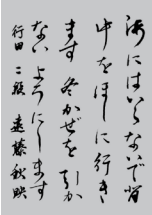 海にはいらないで背
中をほしに行き
ます 冬かぜを引か
ないようにします
行田 二段 遠藤秋映